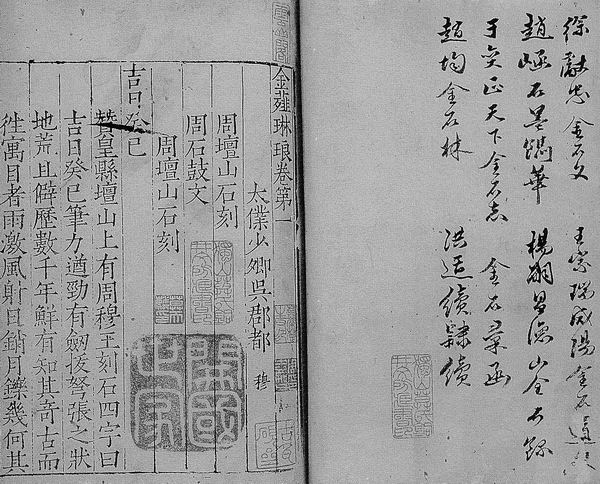 徐獻忠金石文
咸陽金石遺文
趙崡石墨鐫華
楊嗣昌
山金石
于奕正天下金石志
金石
趙均金石林
洪适續隸續
金薤琳琅卷第一
太僕少卿吳郡都 穆
周壇山石刻
周石鼓文
周壇山石刻
吉日癸巳
贊皇縣壇山上有周穆王刻石四字曰
吉日癸巳筆力遒勁有劒拔弩張之狀
地荒且僻歷數千年鮮有知其奇古而
徃寓目者雨激風射日銷月鑠幾何其
開國世家